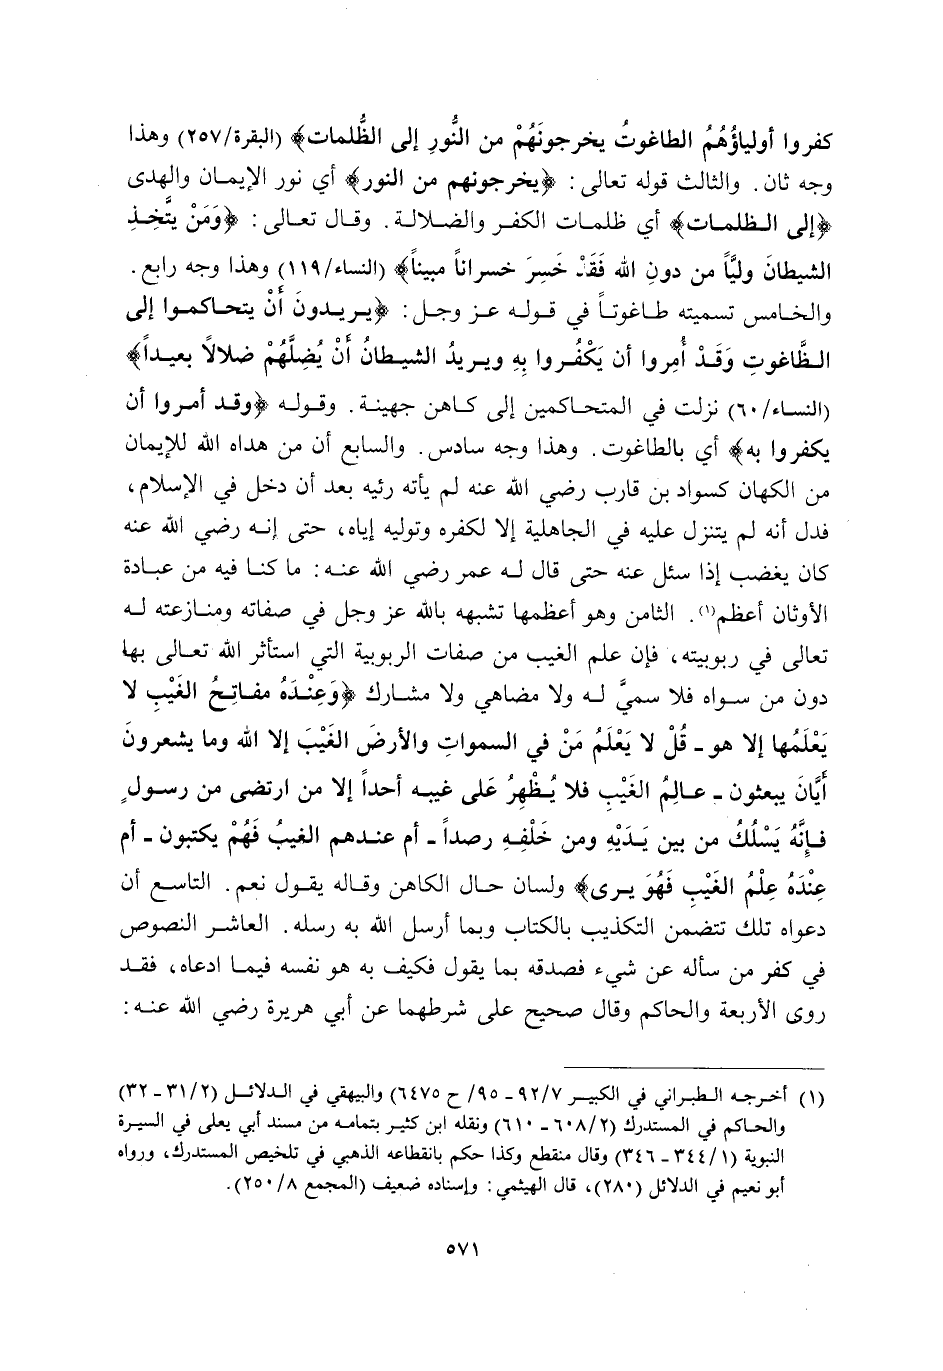 كفروا أولياؤُهُمُ الطاغوتُ يخرجونَهُمْ من النُّورِ إلى الظُّلمات﴾ (البقرة/٢٥٧) وهذا
وجه ثان. والثالث قوله تعالى: ﴿يخرجونهم من النور﴾ أي نور الإيمان والهدى
﴿إلى الظلمات﴾ أي ظلمات الكفر والضلالة. وقال تعالى: ﴿وَمَنْ يتَّخِذِ
الشيطانَ وليَّاً من دونِ الله فَقَدْ خَسِرَ خسراناً مبيناً﴾ (النساء/١١٩) وهذا وجه رابع.
والخامس تسميته طاغوتاً في قوله عز وجل: ﴿يريدونَ أَنْ يتحاكموا إلى
الطَّاغوتِ وَقَدْ أُمِروا أن يَكْفُروا بِهِ ويريدُ الشيطانُ أَنْ يُضِلَّهُمْ ضلالاً بعيداً﴾
(النساء/٦٠) نزلت في المتحاكمين إلى كاهن جهينة. وقوله ﴿وقد أمروا أن
يكفروا به﴾ أي بالطاغوت. وهذا وجه سادس. والسابع أن من هداه الله للإيمان
من الكهان كسواد بن قارب رضي الله عنه لم يأته رئيه بعد أن دخل في الإسلام،
فدل أنه لم يتنزل عليه في الجاهلية إلا لكفره وتوليه إياه، حتى إنه رضي الله عنه
كان يغضب إذا سئل عنه حتى قال له عمر رضي الله عنه: ما كنا فيه من عبادة
الأوثان أعظم(١). الثامن وهو أعظمها تشبهه بالله عز وجل في صفاته ومنازعته له
تعالى في ربوبيته، فإن علم الغيب من صفات الربوبية التي استأثر الله تعالى بها
دون من سواه فلا سميَّ له ولا مضاهي ولا مشارك ﴿وَعِنْدَهُ مفاتِحُ الغَيْبِ لا
يَعْلَمُها إلا هو ـ قُلْ لا يَعْلَمُ مَنْ في السمواتِ والأرضِ الغَيْبَ إلا الله وما يشعرونَ
أَيَّانَ يبعثون ـ عالِمُ الغَيْبِ فلا يُظْهِرُ عَلى غيبه أحداً إلا من ارتضى من رسولٍ
فإنَّهُ يَسْلُكُ من بين يَدَيْهِ ومن خَلْفِهِ رصداً ـ أم عندهم الغيبُ فَهُمْ يكتبون ـ أم
عِنْدَهُ عِلْمُ الغَيْبِ فَهُوَ يرى﴾ ولسان حال الكاهن وقاله يقول نعم. التاسع أن
دعواه تلك تتضمن التكذيب بالكتاب وبما أرسل الله به رسله. العاشر النصوص
في كفر من سأله عن شيء فصدقه بما يقول فكيف به هو نفسه فيما ادعاه، فقد
روى الأربعة والحاكم وقال صحيح على شرطهما عن أبي هريرة رضي الله عنه:
(١) أخرجه الطبراني في الكبير ٩٢/٧ ـ ٩٥/ ح ٦٤٧٥) والبيهقي في الدلائل (٣١/٢ ـ ٣٢)
والحاكم في المستدرك (٦٠٨/٢ ـ ٦١٠) ونقله ابن كثير بتمامه من مسند أبي يعلى في السيرة
النبوية (٣٤٤/١ ـ ٣٤٦) وقال منقطع وكذا حكم بانقطاعه الذهبي في تلخيص المستدرك، ورواه
أبو نعيم في الدلائل (٢٨٠)، قال الهيثمي: وإسناده ضعيف (المجمع ٢٥٠/٨).
٥٧١